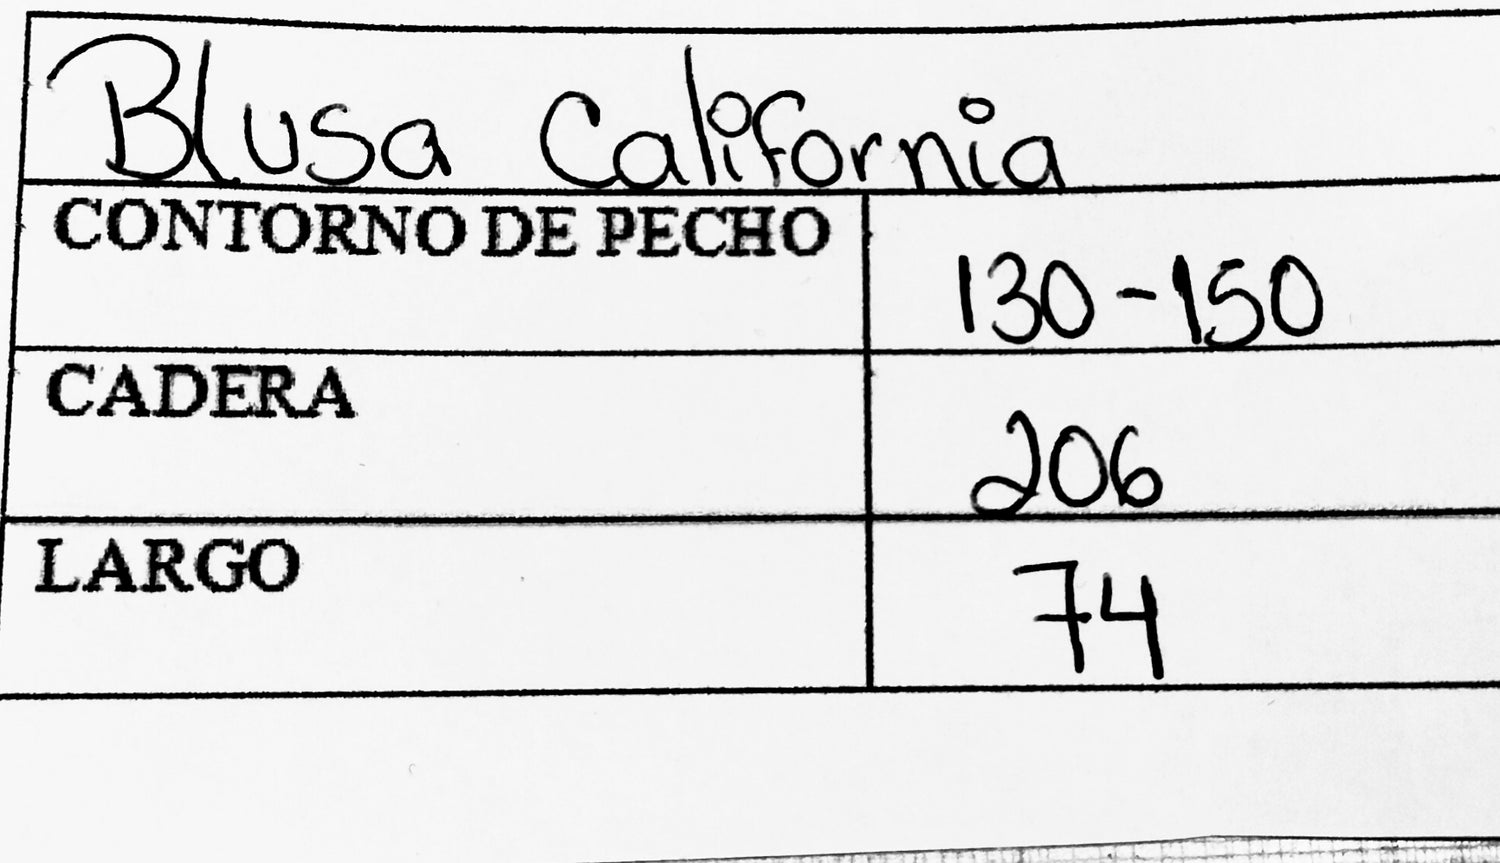 Blusa California
CONTORNO DE PECHO 130-150
CADERA 206
LARGO 74